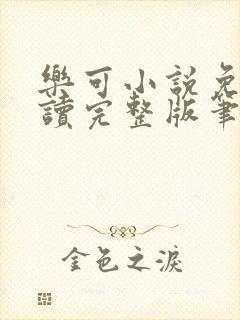 樂可小說免
讀完整版筆
金色之淚